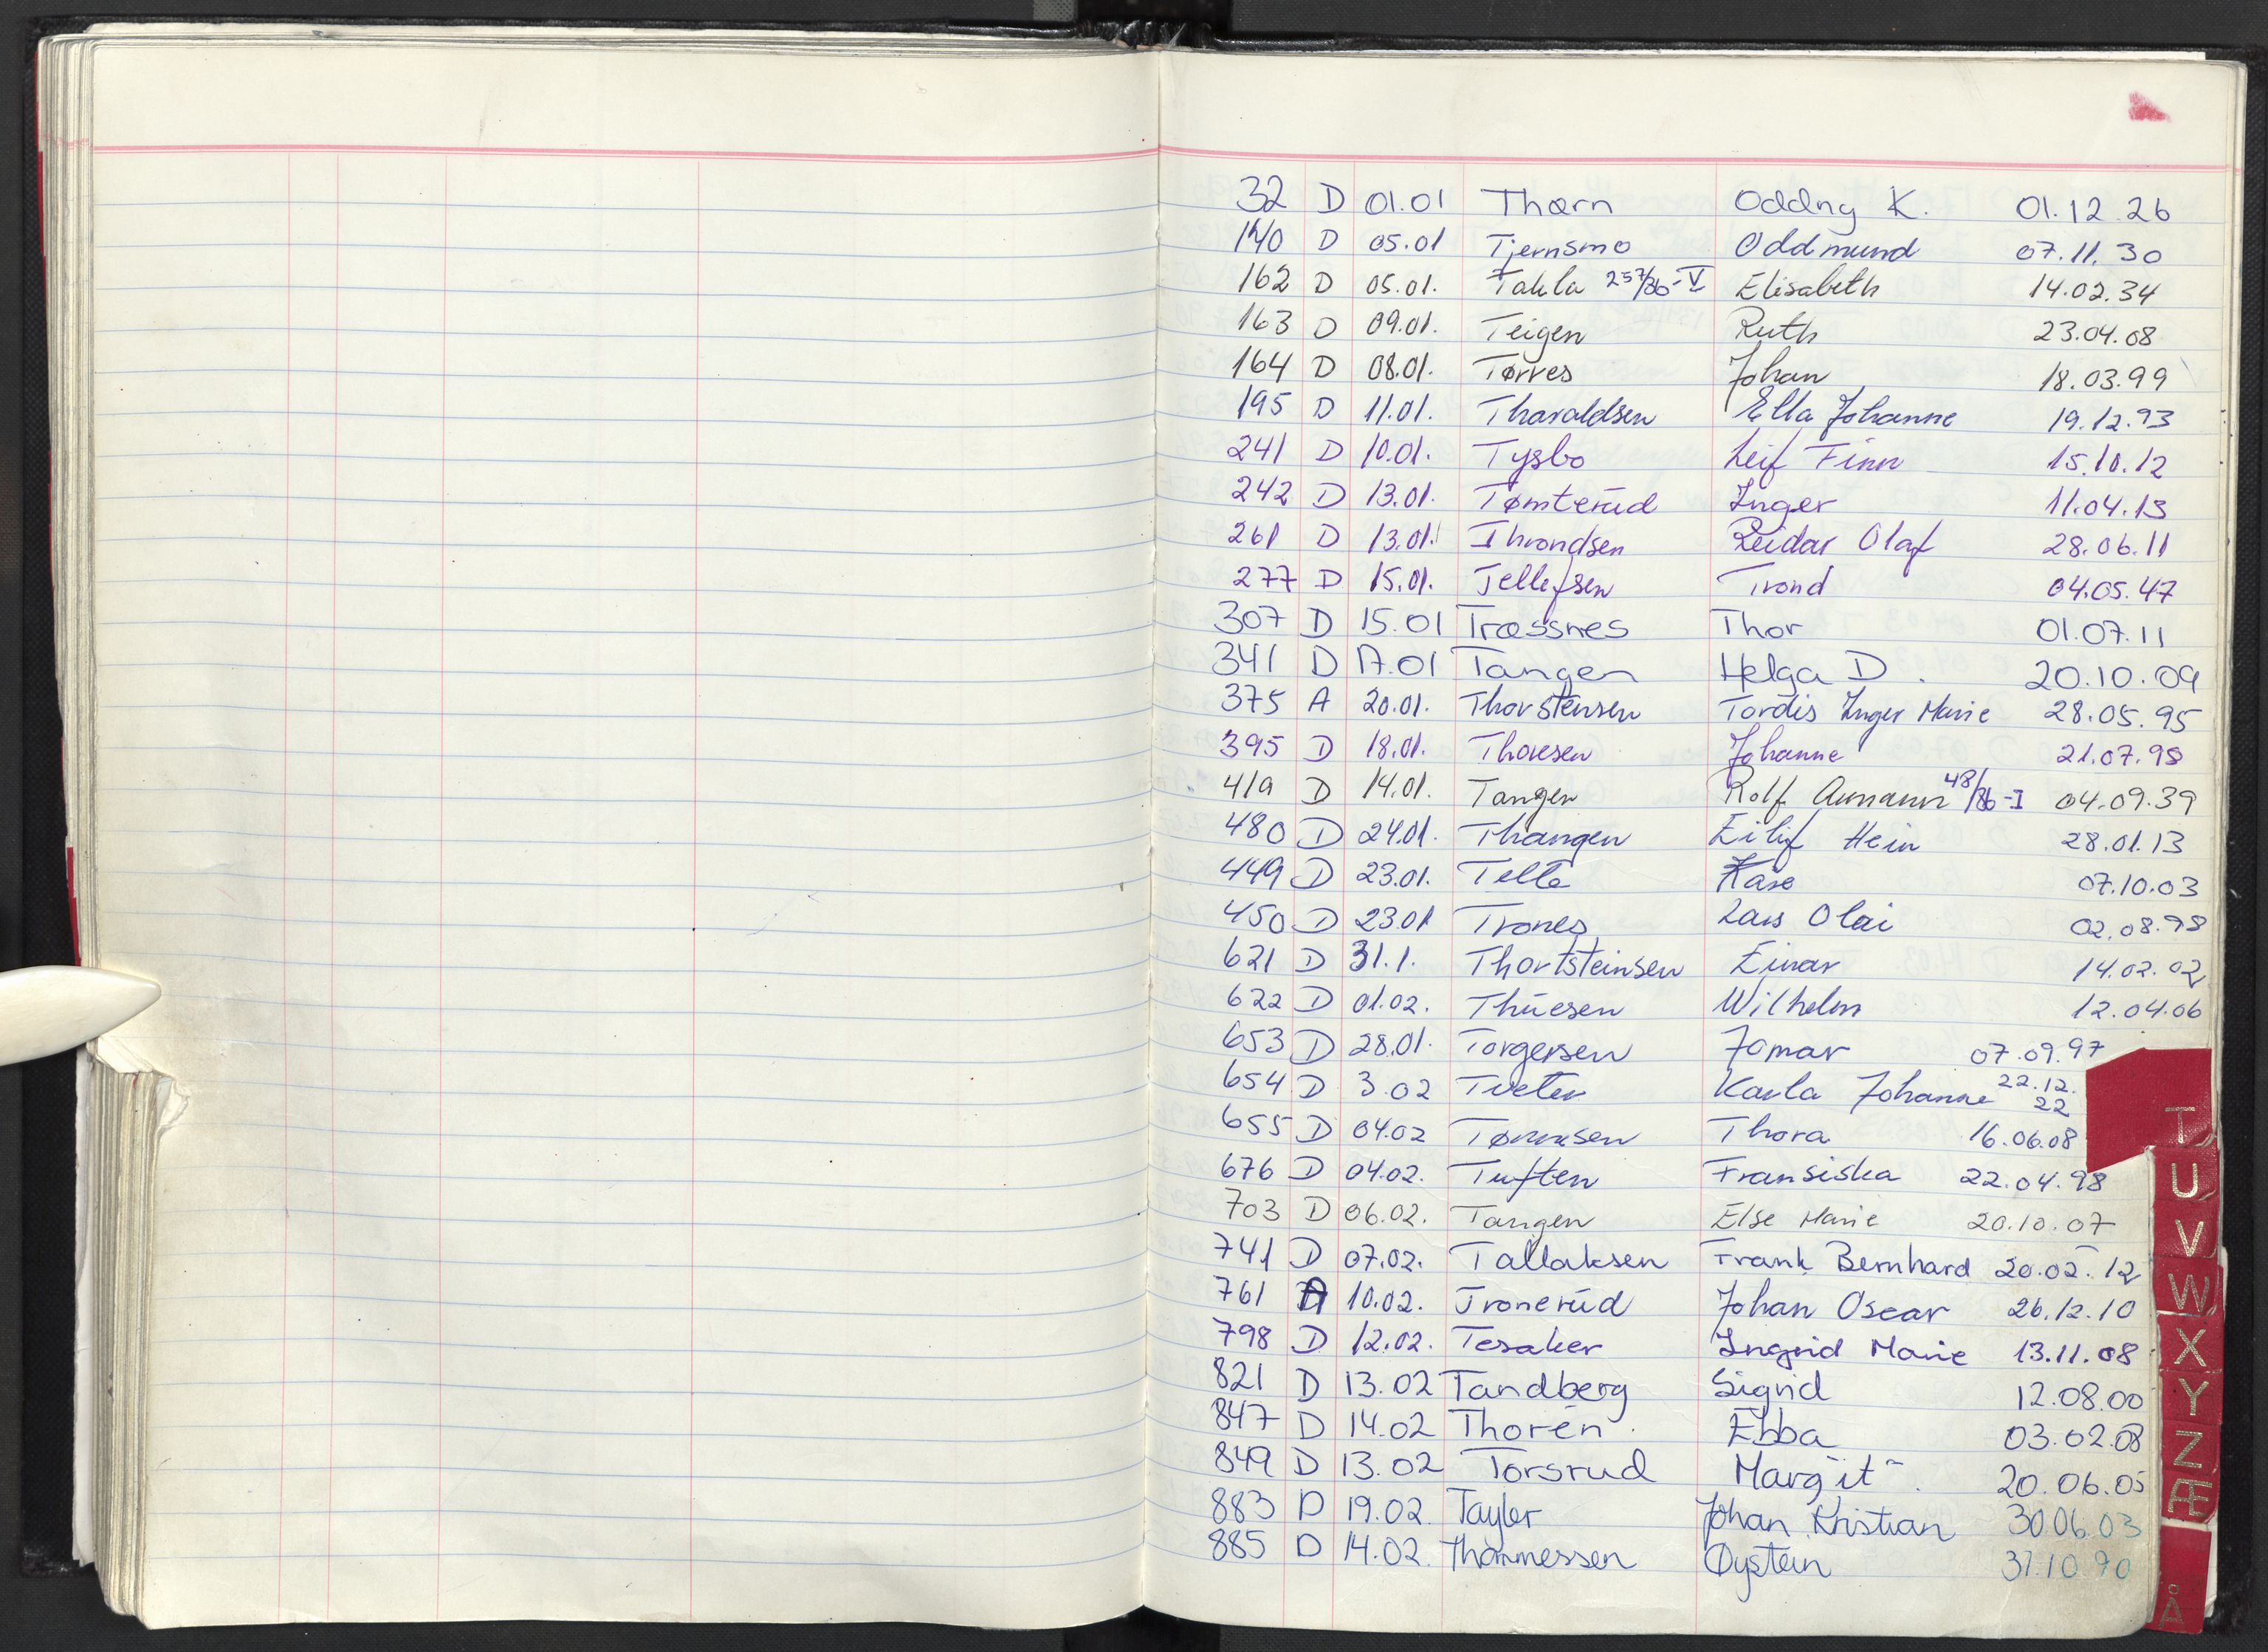 32 D 01.01 Thorn Oddny K. 01.12.26
140 D 05.01 Tjernsmo Oddmund 07.11.30
162 D 05.01. Takla 257/86-V Elisabeth 14.02.34
163 D 09.01. Teigen Ruth 23.04.08
164 D 08.01. Tørres Johan 18.03.99
195 D 11.01. Tharaldsen Ella Johanne 19.12.93
241 D 10.01. Tysbo Leif Finn 15.10.12
242 D 13.01. Tømterud Inger 11.04.13
261 D 13.01. Throndsen Reidar Olaf 28.06.11
277 D 15.01. Tellefsen Trond 04.05.47
307 D 15.01 Træssnes Thor 01.07.11
341 D 17.01 Tangen Helga D. 20.10.09
375 A 20.01. Thorstensen Tordis Inger Marie 28.05.95
395 D 18.01. Thoresen Johanne 21.07.98
419 D 14.01. Tangen Rolf 48/86-I 04.09.39
480 D 24.01. Thangen Eilif Hein 28.01.13
449 D 23.01. Telte Kåre 07.10.03
450 D 23.01 Trones Lars Olai 02.08.98
621 D 31.1. Thortsteinsen Einar 14.02.02
622 D 01.02. Thuesen Wilhelm 12.04.06
653 D 28.01. Torgersen Jomar 07.09.97
654 D 3.02 Tveter Karla Johanne 22.12.22
655 D 04.02 Tønnesen Thora 16.06.08
676 D 04.02. Tuften Fransiska 22.04.98
703 D 06.02. Tangen Else Marie 20.10.07
741 D 07.02. Tallaksen Frank Bernhard 20.02.12
761 A 10.02. Tronerud Johan Oscar 26.12.10
798 D 12.02. Tesaker Ingrid Marie 13.11.08
821 D 13.02 Tandberg Sigrid 12.08.00
847 D 14.02 Thorén. Ebba 03.02.08
849 D 13.02 Torsrud Margit. 20.06.05
883 D 19.02. Tayler Johan Kristian 30.06.03
885 D 14.02. Thommessen Øystein 31.10.90
T
U
V
W
X
Y
Z
Æ
Å